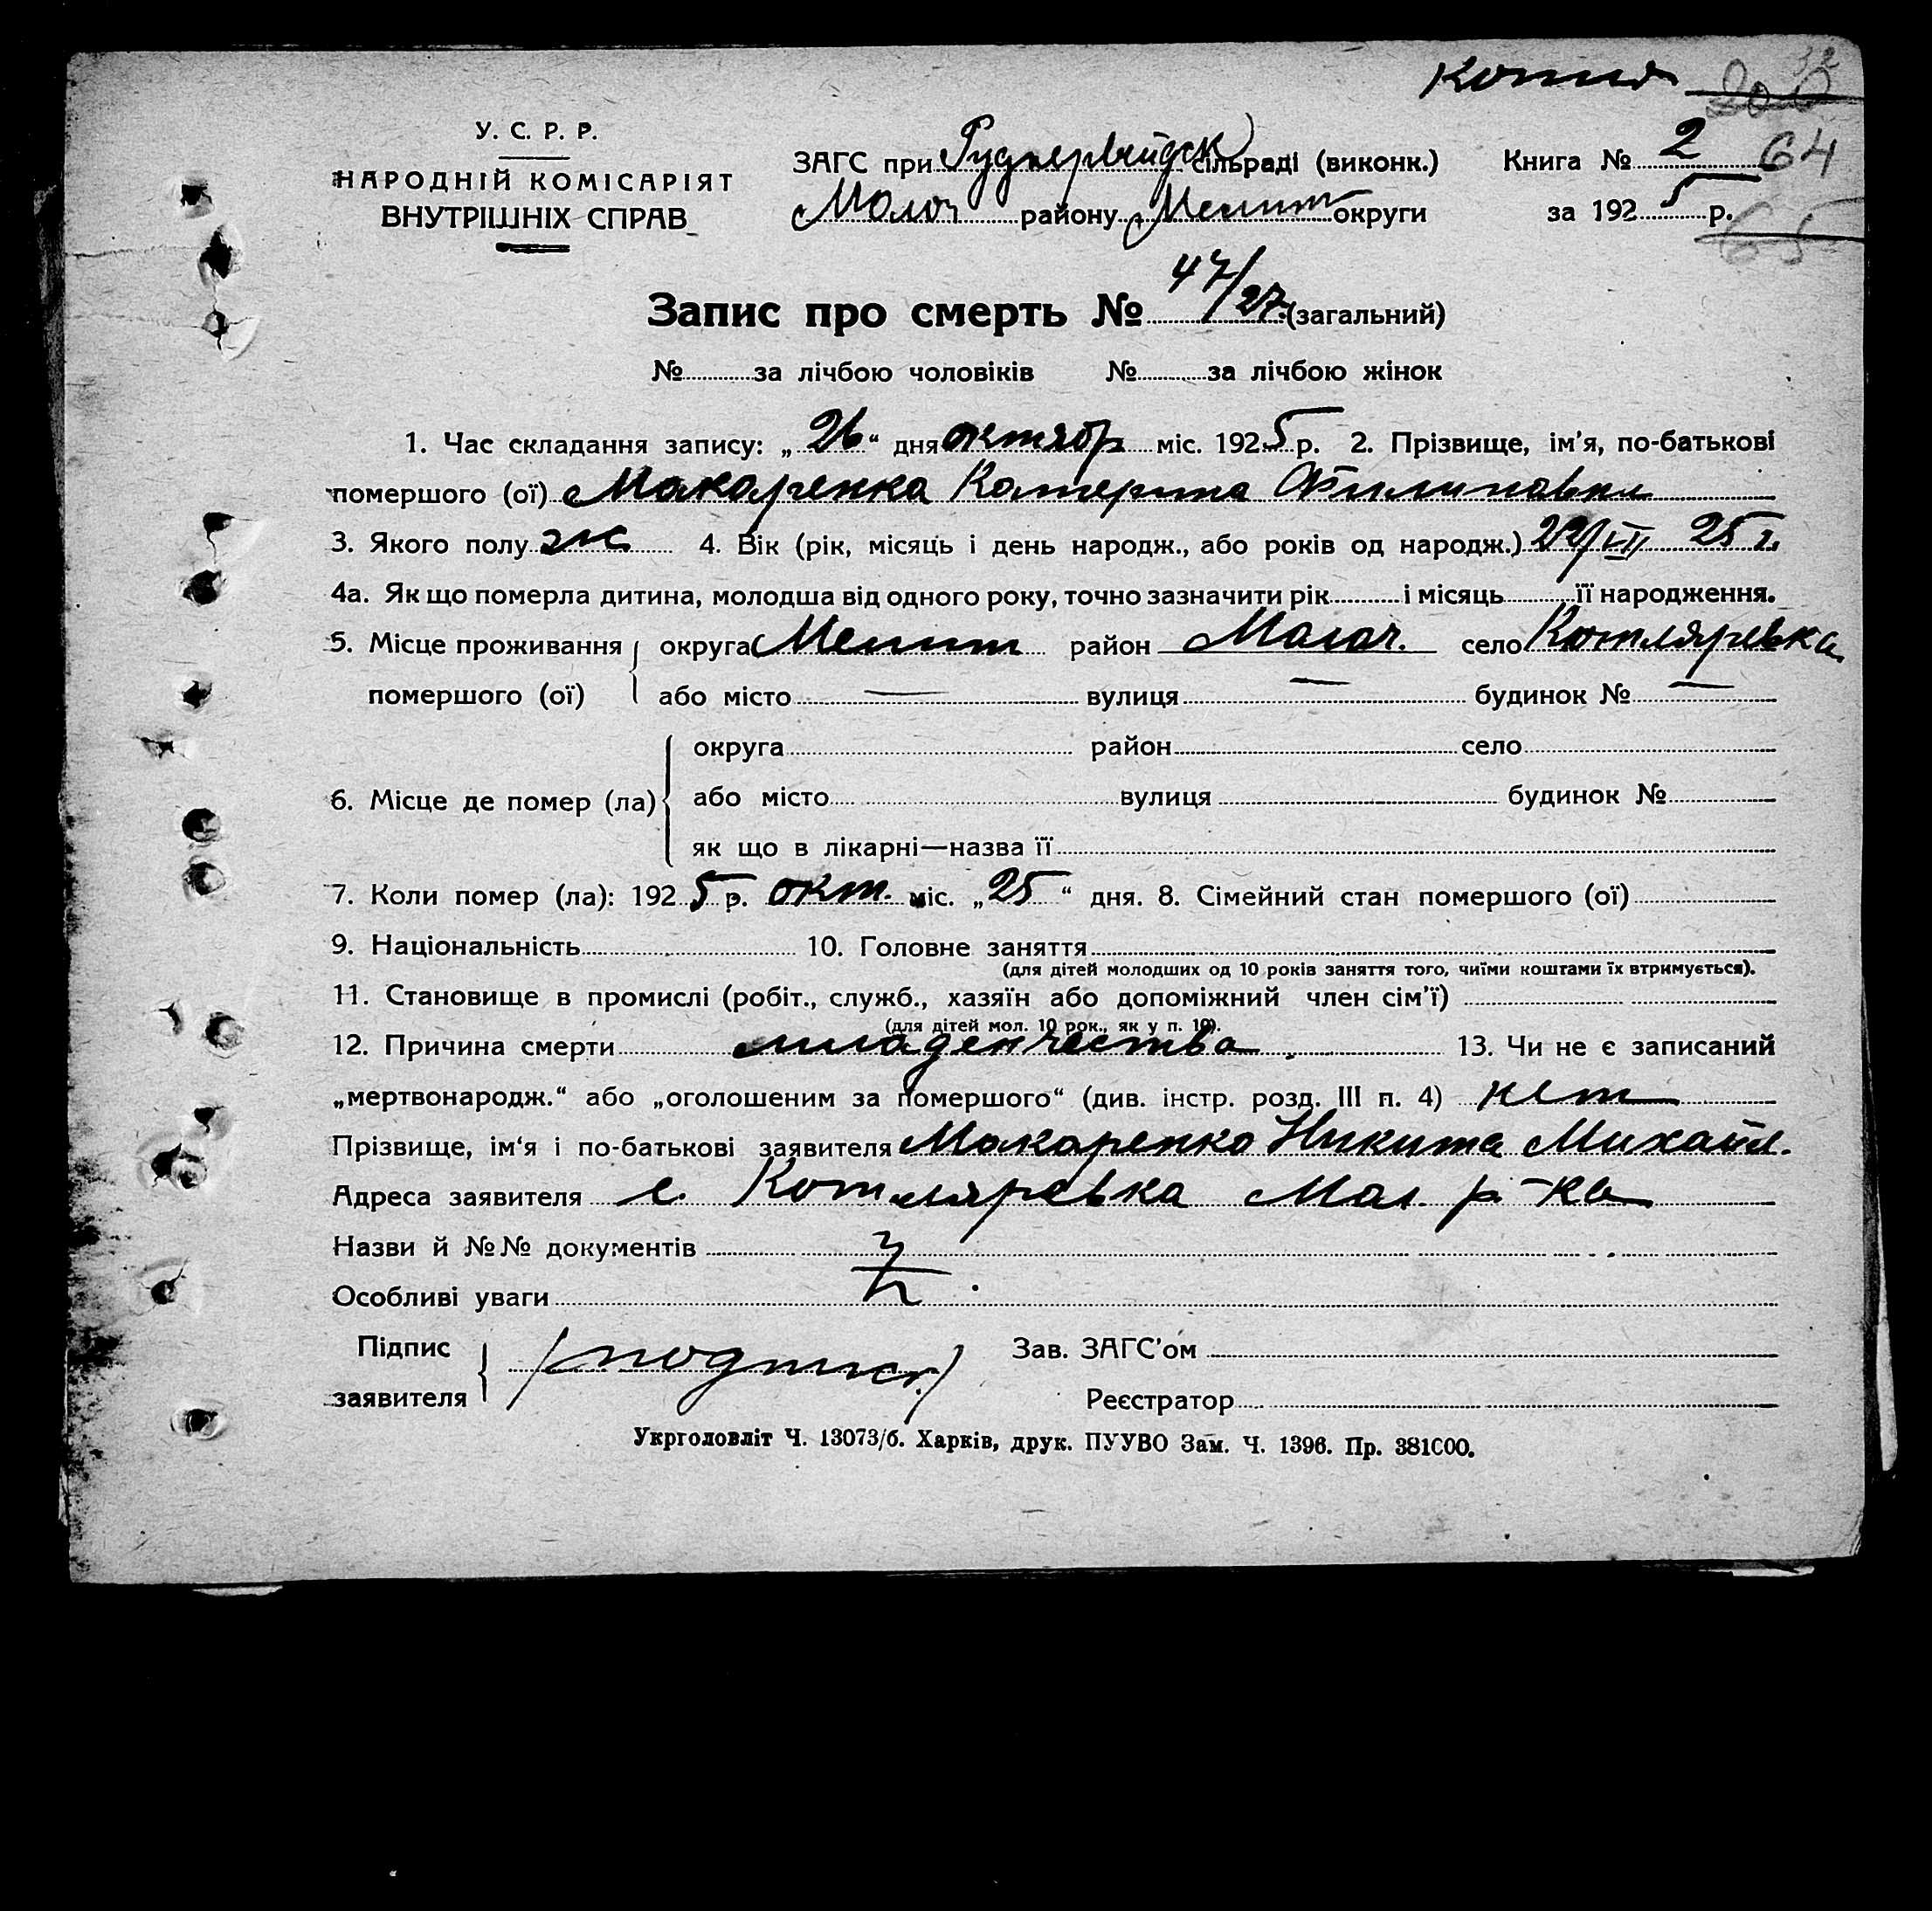 копия 32
У. С. Р. Р.
НАРОДНІЙ КОМІСАРІЯТ
ВНУТРІШНІХ СПРАВ
ЗАГС при Руднервейдск сільраді (виконк.) Книга № 2 64
Молоч району Мелит округи за 1925 р.
65
Запис про смерть № 47/27 (загальний)
№ за лічбою чоловіків № за лічбою жінок
1. Час складання запису: „26“ дня октябр міс. 1925 р. 2. Прізвище, ім'я, по-батькові
помершого (ої) Макаренка Катерина Филиповна
3. Якого полу ж 4. Вік (рік, місяць і день народж., або років од народж.) 25 г.
4а. Як що померла дитина, молодша від одного року, точно зазначити рік і місяць її народження.
5. Місце проживання округа Мелит район Молоч. село Котляревка
помершого (ої) або місто — вулиця — будинок № —
округа район село
6. Місце де помер (ла) або місто вулиця будинок №
як що в лікарні—назва її
7. Коли помер (ла): 1925 р. окт. міс. „25“ дня. 8. Сімейний стан помершого (ої)
9. Національність 10. Головне заняття
(для дітей молодших од 10 років заняття того, чиїми коштами їх втримується).
11. Становище в промислі (робіт., служб., хазяїн або допоміжний член сім'ї)
(для дітей мол. 10 рок., як у п. 10).
12. Причина смерти младенчества 13. Чи не є записаний
„мертвонародж.“ або „оголошеним за помершого“ (див. інстр. розд. III п. 4) нет
Прізвище, ім'я і по-батькові заявителя Макаренко Никита Михайл.
Адреса заявителя с. Котляревка Мол. р-на
Назви й №№ документів
Особливі уваги
Підпис
заявителя (подпись)
Зав. ЗАГС'ом
Реєстратор
Укрголовліт Ч. 13073/б. Харків, друк. ПУУВО Зам. Ч. 1396. Пр. 381000.